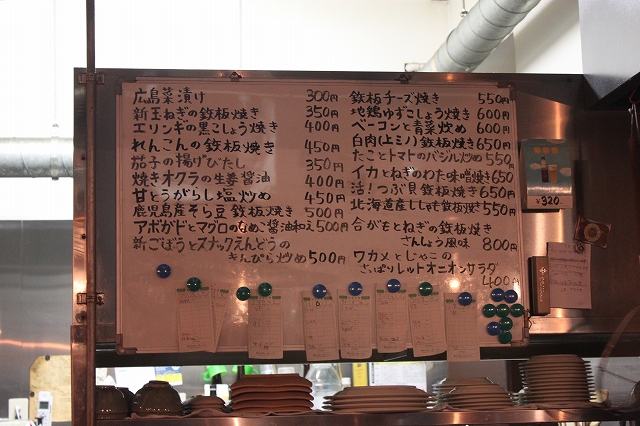 広島菜漬け 300円
新玉ねぎの鉄板焼き 350円
エリンギの黒こしょう焼き 400円
れんこんの鉄板焼き 450円
茄子の揚げびたし 350円
焼きオクラの生姜醤油 400円
甘とうがらし塩炒め 450円
鹿児島産そら豆鉄板焼き 500円
アボガドとマグロのなめこ醤油和え 500円
新ごぼうとスナックえんどうの
きんぴら炒め 500円
鉄板チーズ焼き 550円
地鶏ゆずこしょう焼き 600円
ベーコンと青菜炒め 600円
白肉(上ミノ)鉄板焼き 650円
たことトマトのバジル炒め 550円
イカとねぎのわた味噌焼き 650
活!つぶ貝鉄板焼き 650円
北海道産ししゃも鉄板焼き 550円
合がもとねぎの鉄板焼き
さんしょう風味 800円
ワカメとじゃこの
さっぱりレッドオニオンサラダ
400円
¥320